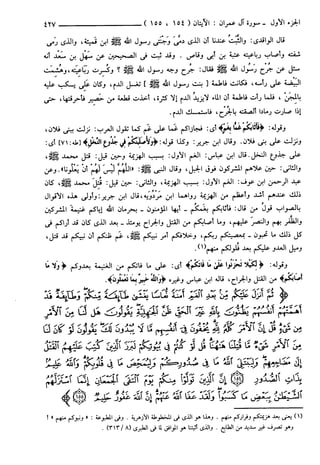 الجزء الأول - سورة آل عمران : الآيتان ( ١٥٤ ، ١٥٥ ) ٤٢٧
قال الواقدى: والثَّبْتُ عندنا أن الذى دمَّى وَجْنَتَى رسول الله ﷺ ابن قميئة، والذى رمى
شفته وأصاب رباعيته عتبة بن أبى وقاص . وقد ثبت فى الصحيحين عن سهل بن سعد أنه
سئل عن جُرْح رسول الله ﷺ فقال: جُرح وجه رسول الله ﷺ ؟ وكُسرت رَبَاعيته، وهُشمت
البَيْضة على رأسه، فكانت فاطمة [ بنت رسول الله ﷺ ] تغسل الدم، وكان عَلِىٌّ يسكب عليه
بالمِجَنّ ، فلما رأت فاطمة أن الماء لايزيدُ الدم إلا كثرة، أخذت قطعة من حَصير فأحرقتها، حتى
إذا صارت رمادا ألصقته بالجُرْح، فاستمسك الدم.
وقوله: ﴿فَأَثَابَكُمْ غَمًّا بِغَمٍّ﴾ أى: فجازاكم غماً على غَم كما تقول العرب: نزلت ببنى فلان،
ونزلت على بنى فلان. وقال ابن جرير: وكذا قوله: ﴿وَلَأُصَلِّبَنَّكُمْ فِي جُذُوعِ النَّخْلِ﴾ [طه: ٧١] أى:
على جذوع النخل. قال ابن عباس: الغم الأول: بسبب الهزيمة وحين قيل: قتل محمد ﷺ،
والثانى: حين علاهم المشركون فوق الجبل، وقال النبى ﷺ: «اللَّهُمَّ لَيْسَ لَهُمْ أَنْ يَعْلُونَا». وعن
عبد الرحمن ابن عوف: الغم الأول: بسبب الهزيمة، والثانى: حين قيل: قُتِل محمد ﷺ، كان
ذلك عندهم أشد وأعظم من الهزيمة رواهما ابن مَرْدُويَه. قال ابن جرير: وأولى هذه الأقوال
بالصواب قولُ من قال: فأثابكم بغَمكُم - أيها المؤمنون - بحرمان الله إياكم غنيمة المشركين
والظَّفر بهم والنصرَ عليهم، وما أصابكم من القتل والجراح يومئذ - بعد الذى كان قد أراكم فى
كل ذلك ما تحبون - بمعصيتكم ربكم، وخلافكم أمر نبيكم ﷺ، غم ظنكم أن نبيكم قد قتل،
وميل العدو عليكم بعد فلولكم منهم(١).
وقوله: ﴿لِكَيْلَا تَحْزَنُوا عَلَىٰ مَا فَاتَكُمْ﴾ أى: على ما فاتكم من الغنيمة بعدوكم ﴿وَلَا مَا
أَصَابَكُمْ﴾ من القتل والجراح، قاله ابن عباس وغيره ﴿وَاللَّهُ خَبِيرٌ بِمَا تَعْمَلُونَ﴾.
﴿ثُمَّ أَنزَلَ عَلَيْكُم مِّنۢ بَعْدِ ٱلْغَمِّ أَمَنَةً نُّعَاسًا يَغْشَىٰ طَآئِفَةً مِّنكُمْ وَطَآئِفَةٌ قَدْ
أَهَمَّتْهُمْ أَنفُسُهُمْ يَظُنُّونَ بِٱللَّهِ غَيْرَ ٱلْحَقِّ ظَنَّ ٱلْجَٰهِلِيَّةِ يَقُولُونَ هَل لَّنَا مِنَ ٱلْأَمْرِ مِن شَىْءٍ قُلْ
إِنَّ ٱلْأَمْرَ كُلَّهُۥ لِلَّهِ يُخْفُونَ فِىٓ أَنفُسِهِم مَّا لَا يُبْدُونَ لَكَ يَقُولُونَ لَوْ كَانَ لَنَا
مِنَ ٱلْأَمْرِ شَىْءٌ مَّا قُتِلْنَا هَٰهُنَا قُل لَّوْ كُنتُمْ فِى بُيُوتِكُمْ لَبَرَزَ ٱلَّذِينَ كُتِبَ عَلَيْهِمُ ٱلْقَتْلُ
إِلَىٰ مَضَاجِعِهِمْ وَلِيَبْتَلِىَ ٱللَّهُ مَا فِى صُدُورِكُمْ وَلِيُمَحِّصَ مَا فِى قُلُوبِكُمْ وَٱللَّهُ عَلِيمٌۢ
بِذَاتِ ٱلصُّدُورِ ﴿١٥٤﴾ إِنَّ ٱلَّذِينَ تَوَلَّوْا۟ مِنكُمْ يَوْمَ ٱلْتَقَى ٱلْجَمْعَانِ إِنَّمَا ٱسْتَزَلَّهُمُ
ٱلشَّيْطَٰنُ بِبَعْضِ مَا كَسَبُوا۟ وَلَقَدْ عَفَا ٱللَّهُ عَنْهُمْ إِنَّ ٱللَّهَ غَفُورٌ حَلِيمٌ ﴿١٥٥﴾
(١) يعنى بعد هزيمتكم وفراركم منهم . وهذا هو الذى فى المخطوطة الأزهرية . وفى المطبوعة : «ونبوكم منهم» !
وهو تصرف غير سديد من الطابع . والذى أثبتنا هو الموافق لما فى الطبرى (٨ / ٣١٣) .